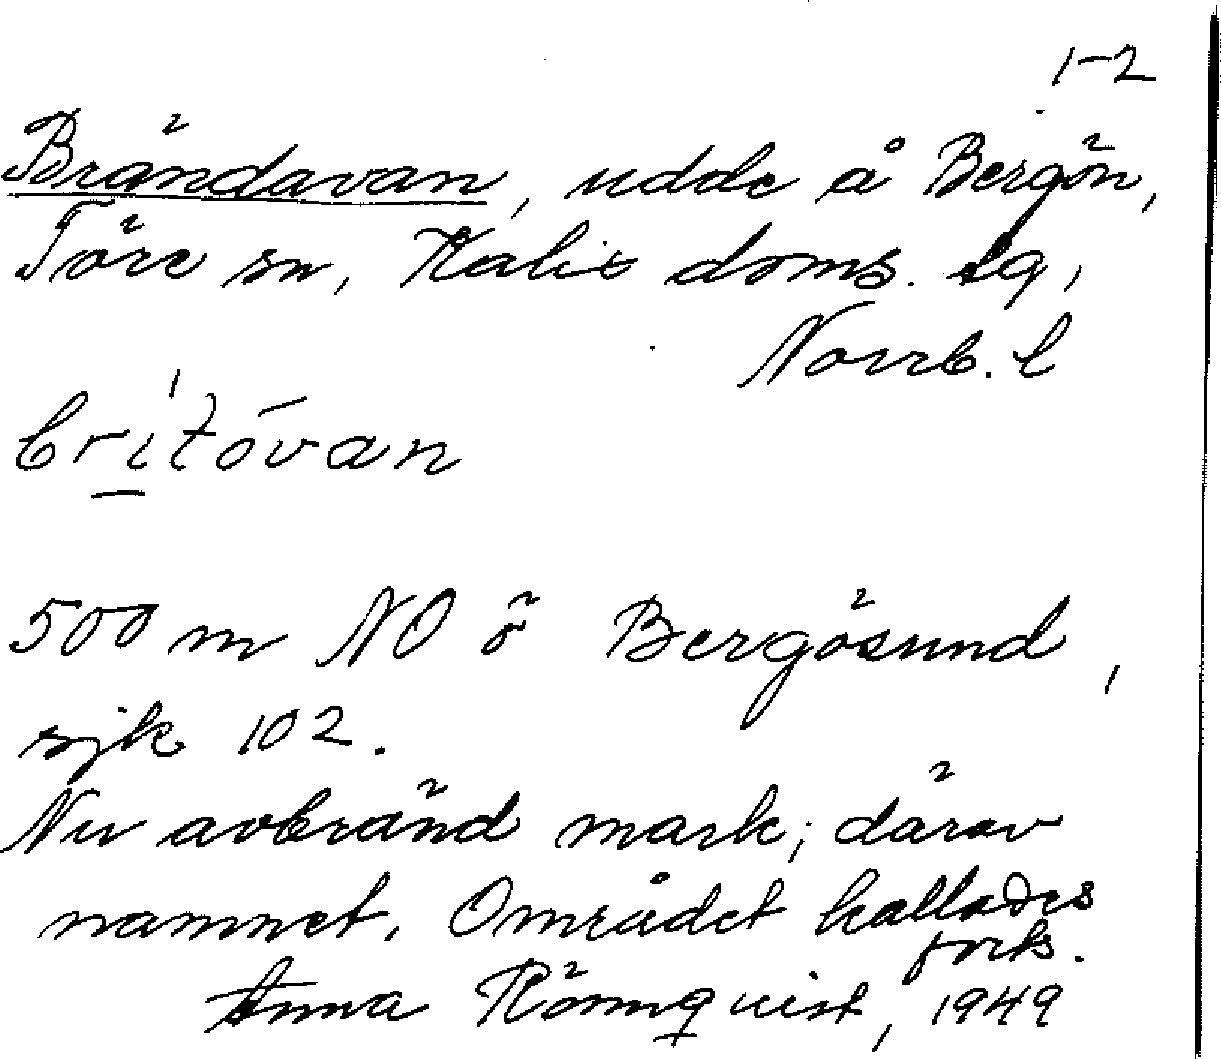 1-2
Brändavan, udde å Bergön,
Töre sn, Kalix doms. lg,
Norrb. l
500 m NO ö Bergösund,
sjk 102.
Nu avbränd mark; därav
namnet. Området kallades
förts.
Anna Rönnquist, 1949